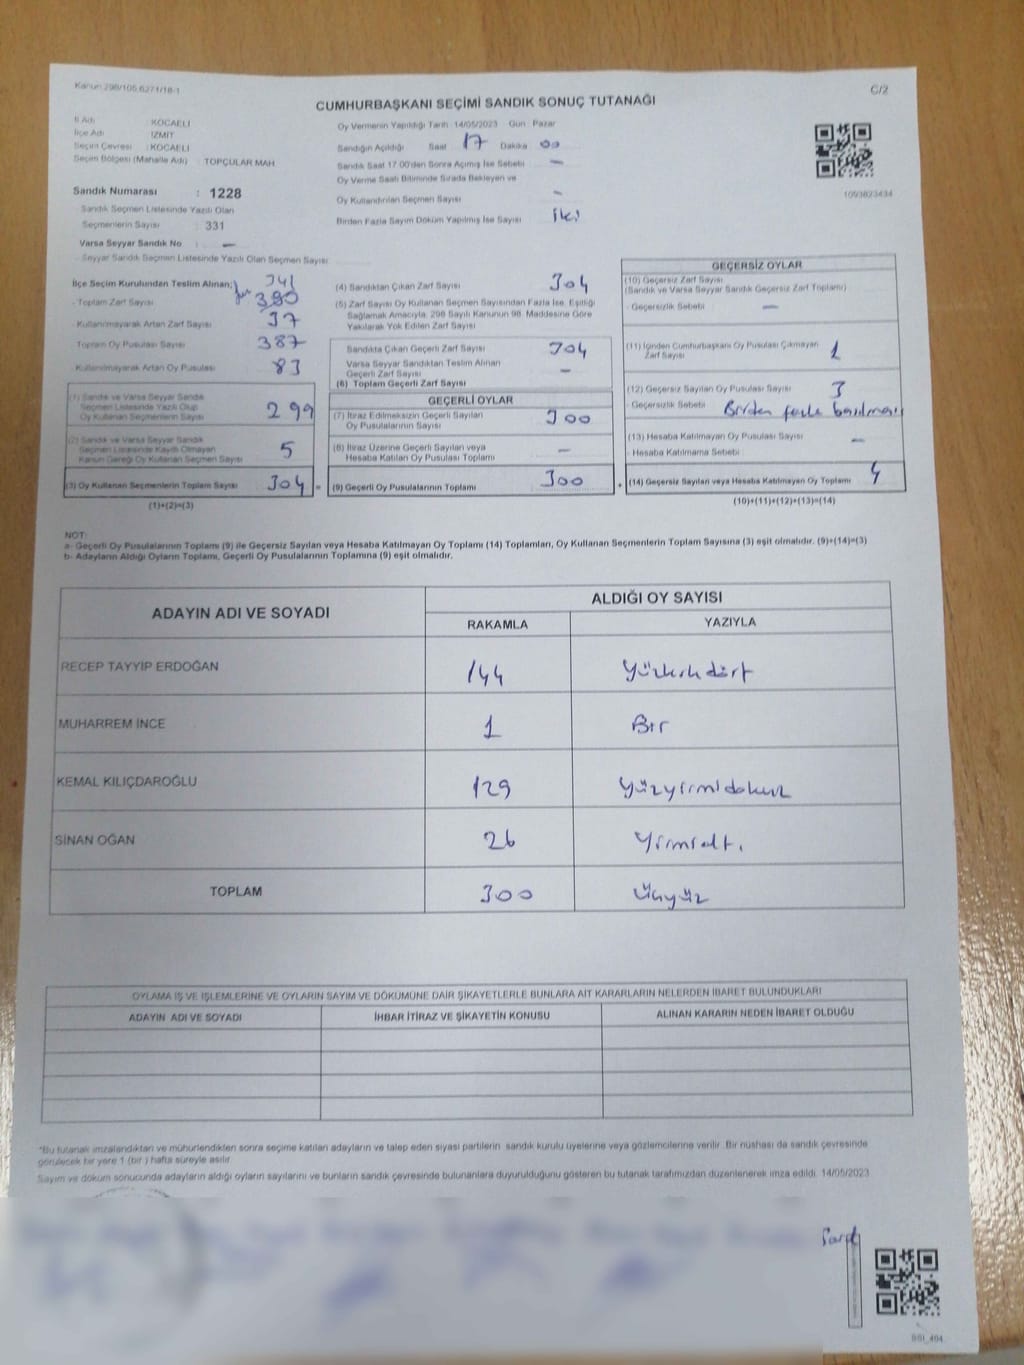 Kanun:298/105,6271/18-1
C/2
CUMHURBAŞKANI SEÇİMİ SANDIK SONUÇ TUTANAĞI
İl Adı : KOCAELİ
İlçe Adı : İZMİT
Seçim Çevresi : KOCAELİ
Seçim Bölgesi (Mahalle Adı) : TOPÇULAR MAH.
Sandık Numarası : 1228
Sandık Seçmen Listesinde Yazılı Olan
Seçmenlerin Sayısı : 331
Varsa Seyyar Sandık No : –
Seyyar Sandık Seçmen Listesinde Yazılı Olan Seçmen Sayısı
Oy Vermenin Yapıldığı Tarih :14/05/2023 Gün : Pazar
Sandığın Açıldığı Saat 17 Dakika 00
Sandık Saat 17.00'den Sonra Açılmış İse Sebebi –
Oy Verme Saati Bitiminde Sırada Bekleyen ve
Oy Kullandırılan Seçmen Sayısı –
Birden Fazla Sayım Döküm Yapılmış İse Sayısı iki
1093823434
İlçe Seçim Kurulundan Teslim Alınan; 341
- Toplam Zarf Sayısı 380
- Kullanılmayarak Artan Zarf Sayısı 37
Toplam Oy Pusulası Sayısı 387
- Kullanılmayarak Artan Oy Pusulası 83
(1) Sandık ve Varsa Seyyar Sandık
Seçmen Listesinde Yazılı Olup
Oy Kullanan Seçmenlerin Sayısı 299
(2) Sandık ve Varsa Seyyar Sandık
Seçmen Listesinde Kayıtlı Olmayan
Kanun Gereği Oy Kullanan Seçmen Sayısı 5
(3) Oy Kullanan Seçmenlerin Toplam Sayısı 304 =
(1)+(2)=(3)
(4) Sandıktan Çıkan Zarf Sayısı 304
(5) Zarf Sayısı Oy Kullanan Seçmen Sayısından Fazla İse, Eşitliği
Sağlamak Amacıyla, 298 Sayılı Kanunun 98. Maddesine Göre
Yakılarak Yok Edilen Zarf Sayısı
Sandıkta Çıkan Geçerli Zarf Sayısı 304
Varsa Seyyar Sandıktan Teslim Alınan
Geçerli Zarf Sayısı –
(6) Toplam Geçerli Zarf Sayısı
GEÇERLİ OYLAR
(7) İtiraz Edilmeksizin Geçerli Sayılan
Oy Pusulalarının Sayısı 300
(8) İtiraz Üzerine Geçerli Sayılan veya
Hesaba Katılan Oy Pusulası Toplamı –
(9) Geçerli Oy Pusulalarının Toplamı 300 +
GEÇERSİZ OYLAR
(10) Geçersiz Zarf Sayısı
(Sandık ve Varsa Seyyar Sandık Geçersiz Zarf Toplamı)
- Geçersizlik Sebebi –
(11) İçinden Cumhurbaşkanı Oy Pusulası Çıkmayan
Zarf Sayısı 1
(12) Geçersiz Sayılan Oy Pusulası Sayısı 3
- Geçersizlik Sebebi Birden fazla basılması
(13) Hesaba Katılmayan Oy Pusulası Sayısı –
- Hesaba Katılmama Sebebi
(14) Geçersiz Sayılan veya Hesaba Katılmayan Oy Toplamı 4
(10)+(11)+(12)+(13)=(14)
NOT:
a- Geçerli Oy Pusulalarının Toplamı (9) ile Geçersiz Sayılan veya Hesaba Katılmayan Oy Toplamı (14) Toplamları, Oy Kullanan Seçmenlerin Toplam Sayısına (3) eşit olmalıdır. (9)+(14)=(3)
b- Adayların Aldığı Oyların Toplamı, Geçerli Oy Pusulalarının Toplamına (9) eşit olmalıdır.
ADAYIN ADI VE SOYADI ALDIĞI OY SAYISI
RAKAMLA YAZIYLA
RECEP TAYYİP ERDOĞAN 144 Yüzkırkdört
MUHARREM İNCE 1 Bir
KEMAL KILIÇDAROĞLU 129 yüzyirmidokuz
SİNAN OĞAN 26 Yirmialtı
TOPLAM 300 Üçyüz
OYLAMA İŞ VE İŞLEMLERİNE VE OYLARIN SAYIM VE DÖKÜMÜNE DAİR ŞİKAYETLERLE BUNLARA AİT KARARLARIN NELERDEN İBARET BULUNDUKLARI
ADAYIN ADI VE SOYADI İHBAR İTİRAZ VE ŞİKAYETİN KONUSU ALINAN KARARIN NEDEN İBARET OLDUĞU
*Bu tutanak imzalandıktan ve mühürlendikten sonra seçime katılan adayların ve talep eden siyasi partilerin sandık kurulu üyelerine veya gözlemcilerine verilir. Bir nüshası da sandık çevresinde
görülecek bir yere 1 (bir ) hafta süreyle asılır.
Sayım ve döküm sonucunda adayların aldığı oyların sayılarını ve bunların sandık çevresinde bulunanlara duyurulduğunu gösteren bu tutanak tarafımızdan düzenlenerek imza edildi. 14/05/2023